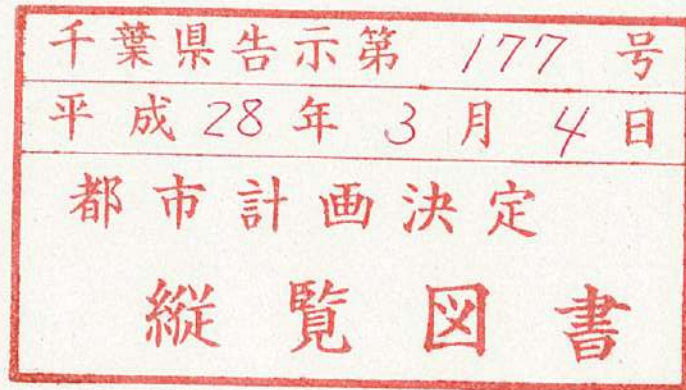 千葉県告示第 177 号
平成 28 年 3 月 4 日
都市計画決定
縦覧図書